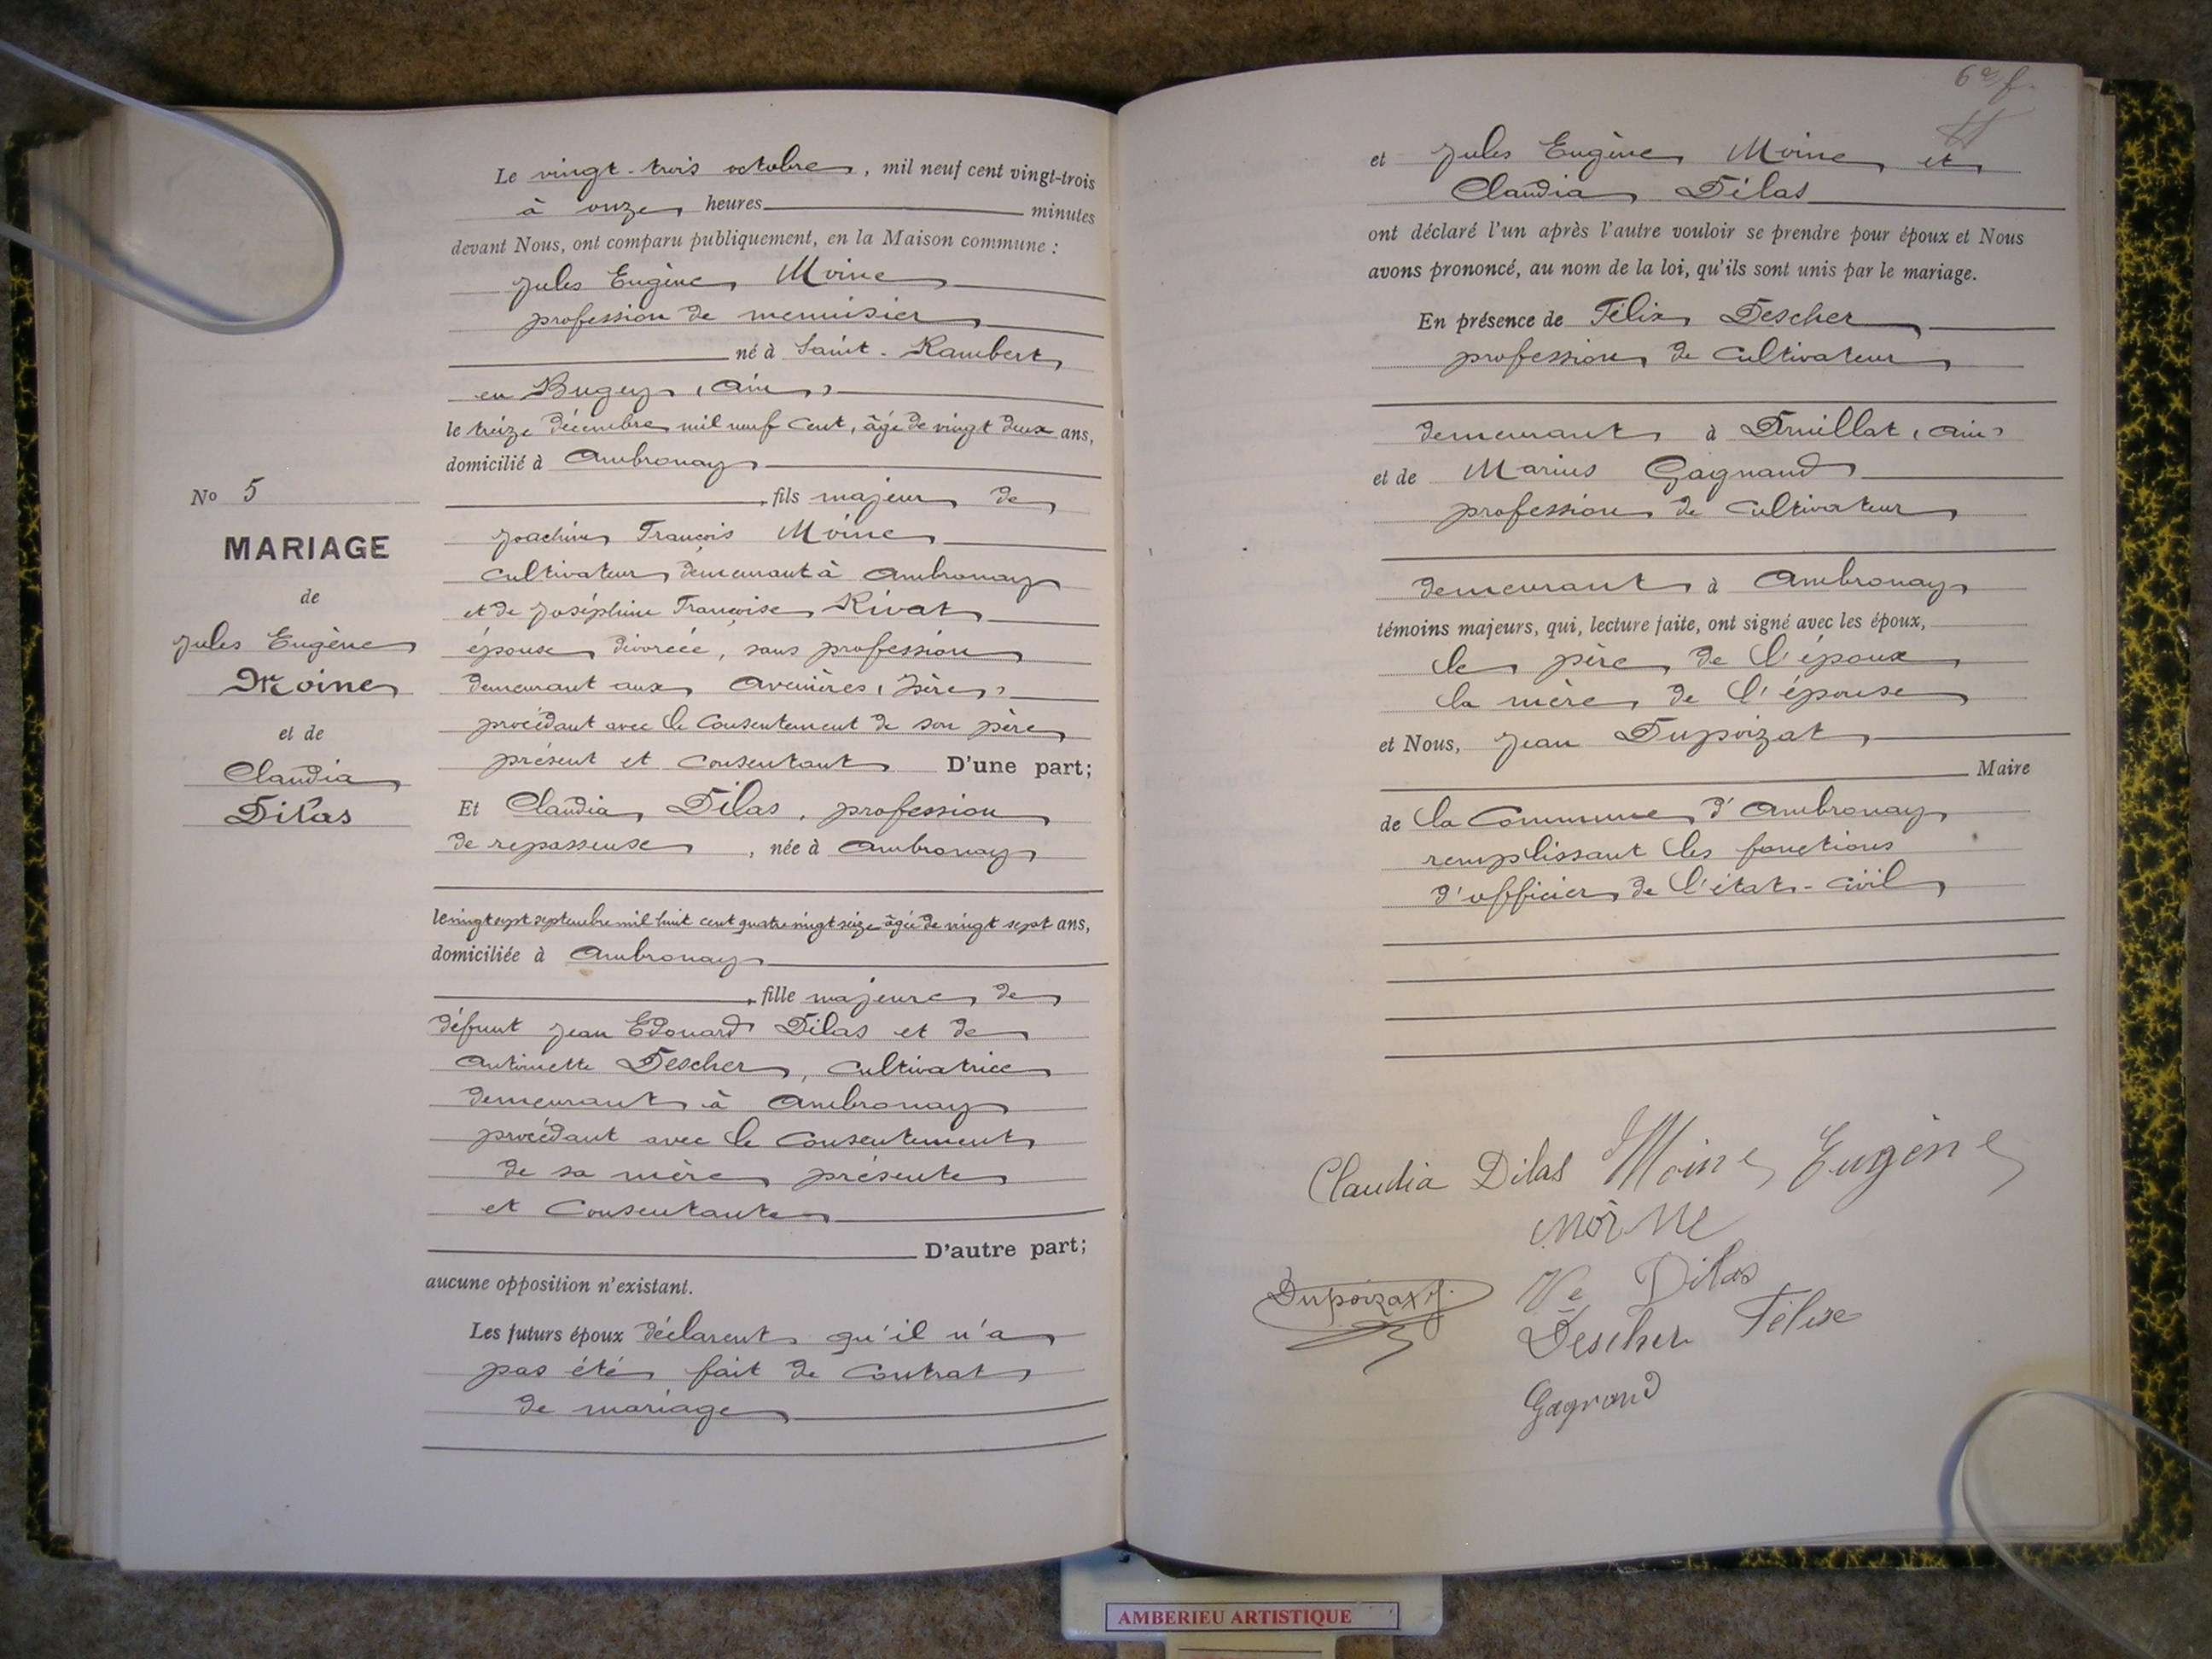 Le vingt-trois octobre, mil neuf cent vingt-trois
à onze heures minutes
devant Nous, ont comparu publiquement, en la Maison commune :
Jules Eugène Moine
profession de menuisier
né à Saint-Rambert
en Bugey (Ain)
le treize décembre mil neuf cent, âgé de vingt deux ans,
domicilié à Ambronay
fils majeur de
Joachim François Moine
cultivateur demeurant à Ambronay
et de Joséphine Françoise Rivat
épouse divorcée, sans profession
demeurant aux Avenières (Isère)
procédant avec le consentement de son père
présent et consentant D'une part;
Et Claudia Dilas, profession
de repasseuse, née à Ambronay
le vingt sept septembre mil huit cent quatre vingt seize âgée de vingt sept ans,
domiciliée à Ambronay
, fille majeure de
défunt Jean Edouard Dilas et de
Antoinette Descher, cultivatrice
demeurant à Ambronay
procédant avec le consentement
de sa mère présente
et consentante
D'autre part;
aucune opposition n'existant.
Les futurs époux déclarent qu'il n'a
pas été fait de contrat
de mariage
No 5
MARIAGE
de
Jules Eugène
Moine
et de
Claudia
Dilas
6e f.
et Jules Eugène Moine et
Claudia Dilas
ont déclaré l'un après l'autre vouloir se prendre pour époux et Nous
avons prononcé, au nom de la loi, qu'ils sont unis par le mariage.
En présence de Félix Descher
profession de cultivateur
demeurant à Druillat (Ain)
et de Marius Gagnand
profession de cultivateur
demeurant à Ambronay
témoins majeurs, qui, lecture faite, ont signé avec les époux,
le père de l'époux
la mère de l'épouse
et Nous, Jean Dupoizat
Maire
de la Commune d'Ambronay
remplissant les fonctions
d'officier de l'état-civil
Claudia Dilas Moine Eugène
Moine
Dupoizat J.
Ve Dilas
Descher Félix
Gagnand
AMBERIEU ARTISTIQUE